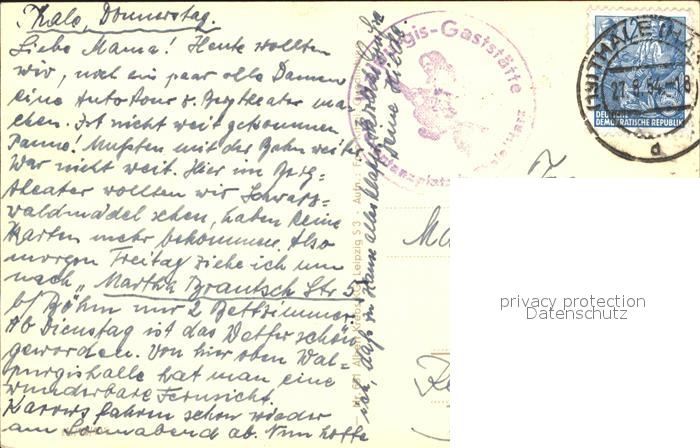 Thale, Donnerstag.
Liebe Mama! Heute wollten
wir, noch ein paar olle Damen
eine Autotour z. Bergtheater ma-
chen. Ist nicht weit gekommen
Panne! Mußten mit der Bahn weiter
War nicht weit. Hier im Berg-
theater wollten wir Schwarz-
waldmädel sehen, haben keine
Karten mehr bekommen. Also
morgen Freitag ziehe ich um
nach "Martha Brautzsch Str 5
b/ Böhm nur 2 Bettzimmer.
Ab Dienstag ist das Wetter schön
geworden. Von hier oben Wal-
purgishalle hat man eine
wunderbare Fernsicht.
Karows fahren schon wieder
am Sonnabend ab. Nun hoffe
ich, daß zu Hause alles klappt
Deine Hilde
Leipzig S 3
rgis-Gaststätte
nzplatz
THALE (HARZ)
27.8.54
d
DEUTSCHE
DEMOKRATISCHE REPUBLIK
privacy protection
Datenschutz